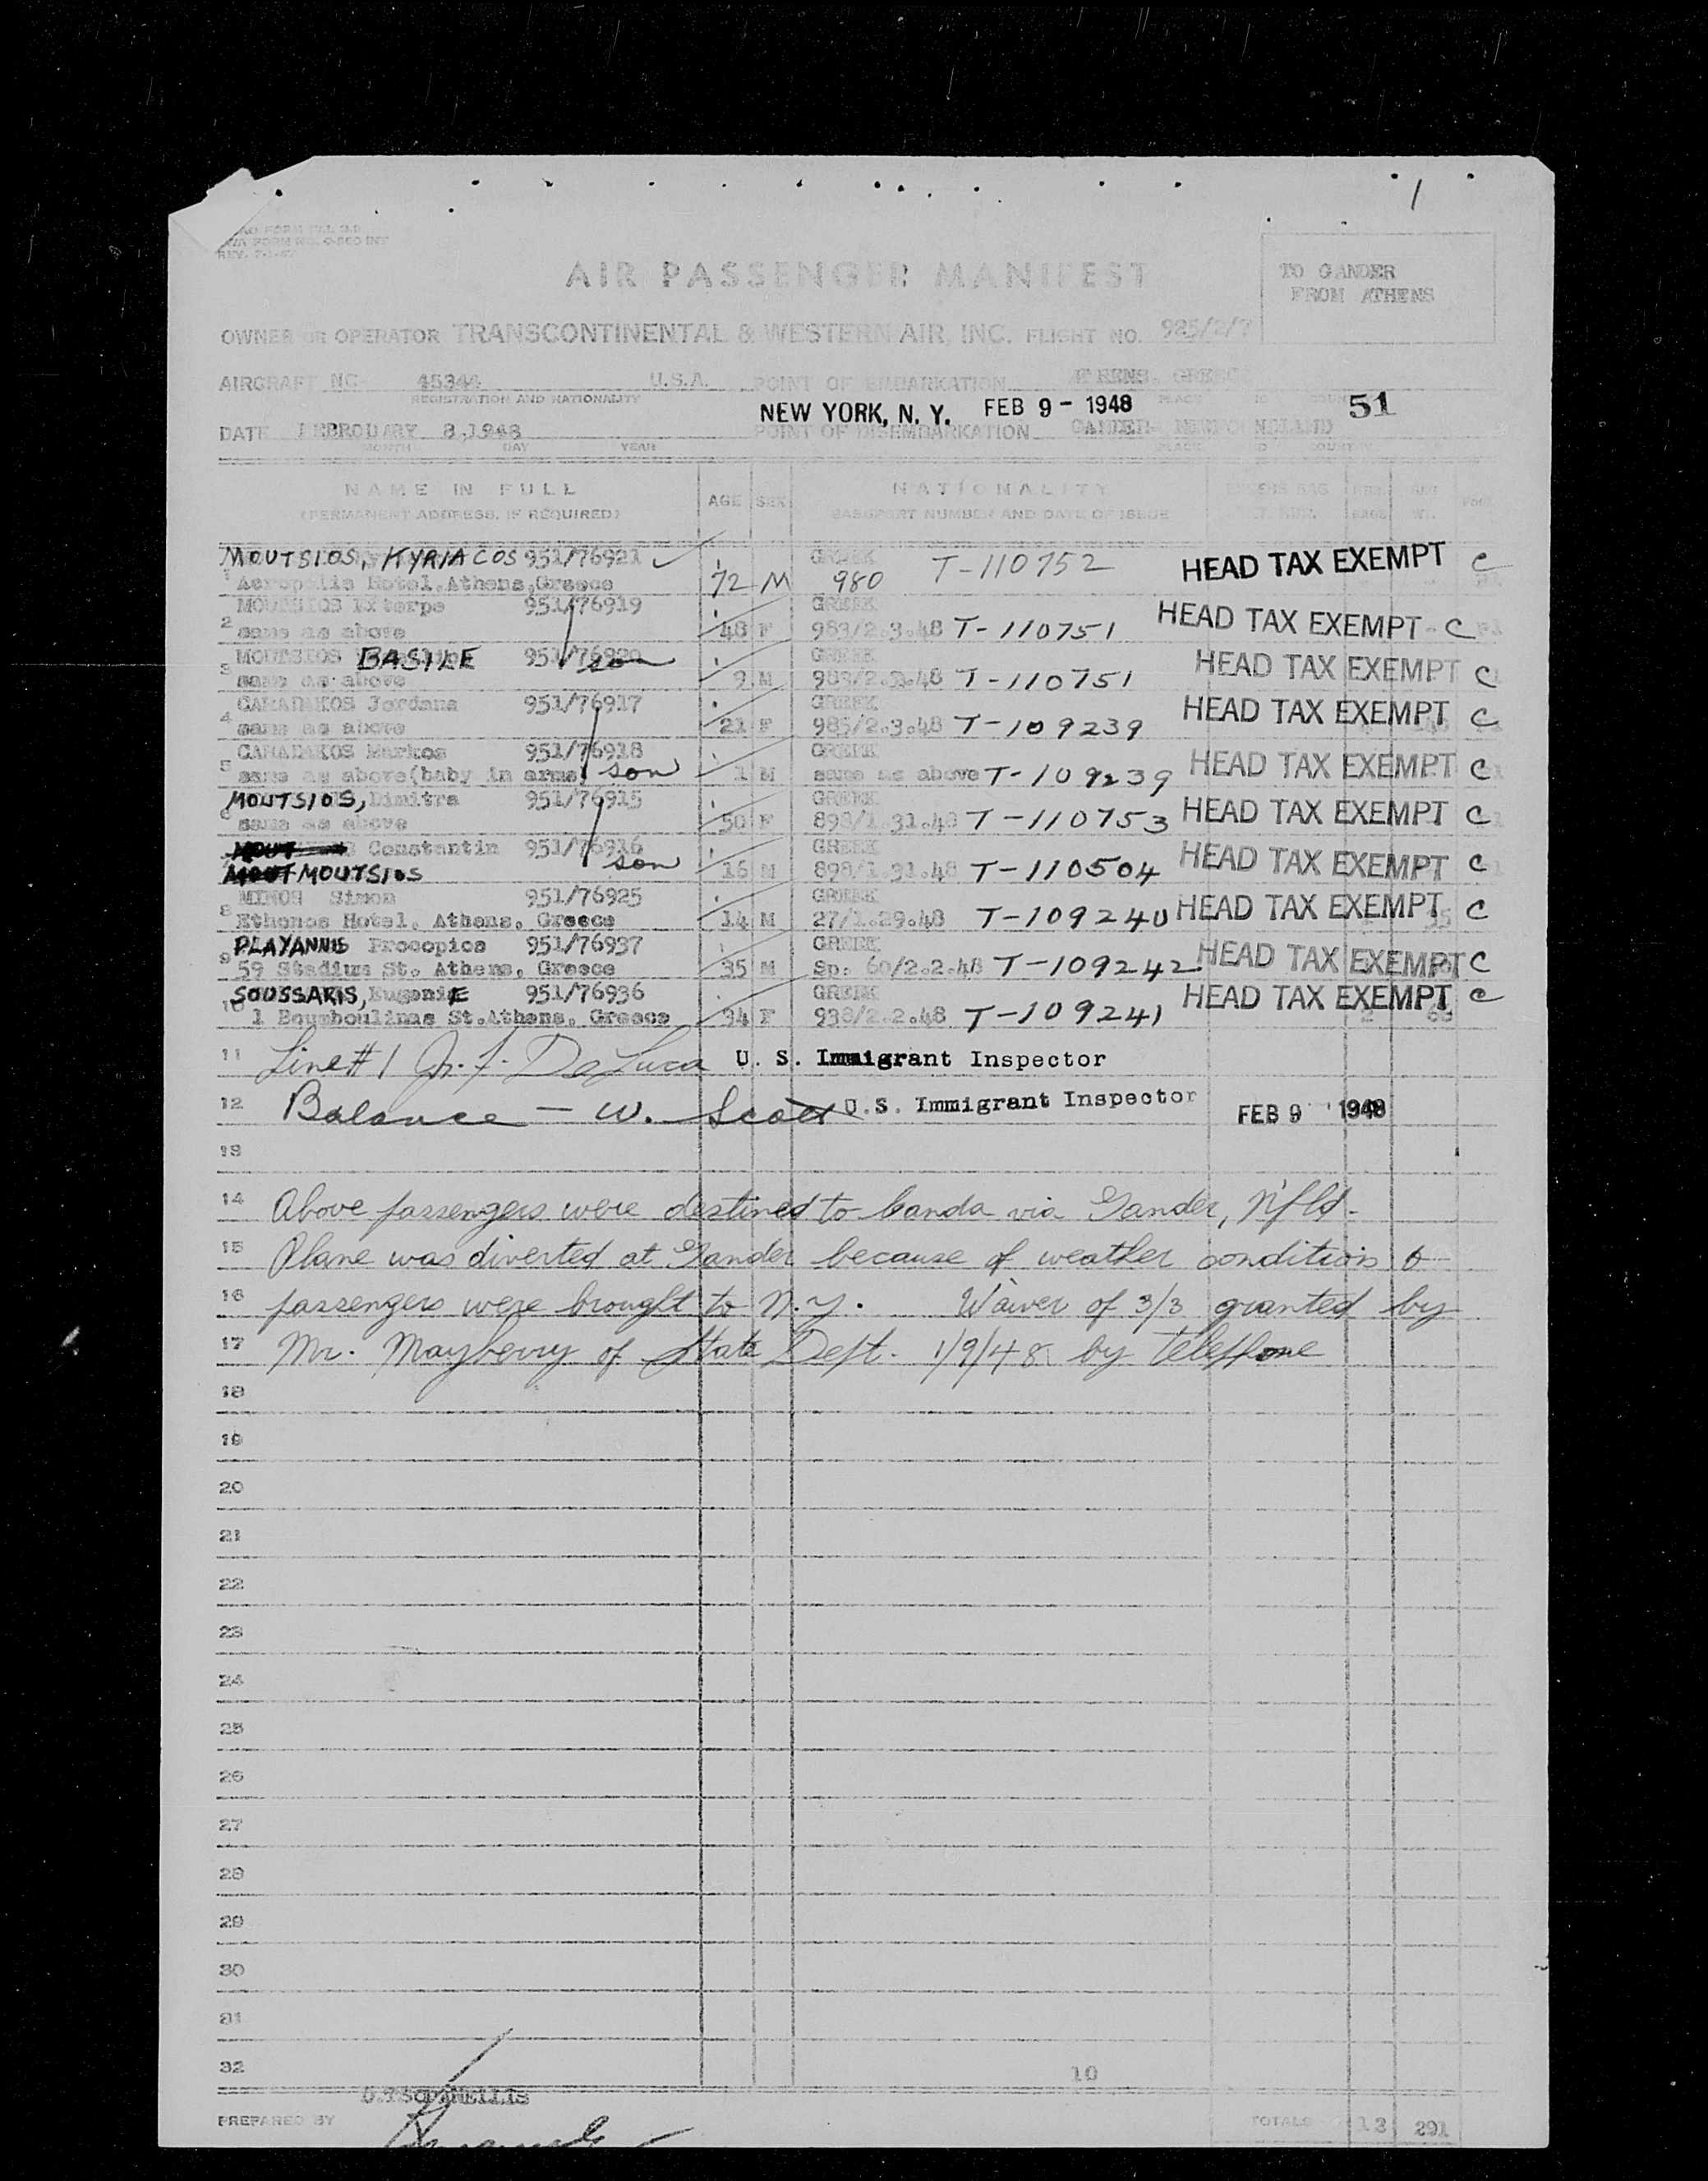 1
REV.
AIR PASSENGER MANIFEST
TO GANDER
FROM ATHENS
OWNER OR OPERATOR TRANSCONTINENTAL & WESTERN AIR, INC. FLIGHT NO. 925/2/7
AIRCRAFT NO. 45344 U.S.A. POINT OF EMBARKATION
REGISTRATION AND NATIONALITY PLACE
NEW YORK, N. Y. FEB 9 - 1948 51
DATE FEBROUARY 8,1948 POINT OF DISEMBARKATION GANDER
MONTH DAY YEAR PLACE
NAME IN FULL AGE SEX NATIONALITY
(PERMANENT ADDRESS, IF REQUIRED) PASSPORT NUMBER AND DATE OF ISSUE
MOUTSIOS, KYRIACOS 951/76921 GREEK T-110752 HEAD TAX EXEMPT C
1 Acropolis Hotel, Athens, Greece 72 M 980
MOUTSIOS 951/76919 GREEK HEAD TAX EXEMPT C
2 same as above 48 F 983/2.3.48 T-110751
MOUTSIOS BASILE 951/76920 son GREEK HEAD TAX EXEMPT C
3 same as above 9 M 983/2.3.48 T-110751
Jordana 951/76917 GREEK HEAD TAX EXEMPT C
4 same as above 21 F 985/2.3.48 T-109239
Markos 951/76918 GREEK HEAD TAX EXEMPT C
5 same as above(baby in arms) son 1 M same as above T-109239
MOUTSIOS, Dimitra 951/76915 GREEK HEAD TAX EXEMPT C
6 same as above 50 F 898/1.31.48 T-110753
Constantin 951/76916 GREEK HEAD TAX EXEMPT C
MOUTSIOS son 16 M 898/1.31.48 T-110504
MINOS Simon 951/76925 GREEK HEAD TAX EXEMPT C
8 Ethonos Hotel, Athens, Greece 14 M 27/1.29.48 T-109240
PLAYANNIS Procopios 951/76937 GREEK HEAD TAX EXEMPT C
9 59 Stadium St. Athens, Greece 35 M Sp. 60/2.2.48 T-109242
SOUSSARIS, EugeniE 951/76936 GREEK HEAD TAX EXEMPT C
10 1 Boumboulinas St.Athens, Greece 34 F 938/2.2.48 T-109241
11 Line # 1 DeLuca U. S. Immigrant Inspector
12 Balance - W. Scott U.S. Immigrant Inspector FEB 9 1948
13
14 Above passengers were destined to Canda via Gander, Nfld.
15 Plane was diverted at Gander because of weather condition &
16 passengers were brought to N.Y. Waiver of 3/3 granted by
17 Mr. Mayberry of State Dept. 1/9/48 by telephone
18
19
20
21
22
23
24
25
26
27
28
29
30
31
32
10
PREPARED BY TOTALS 13 291